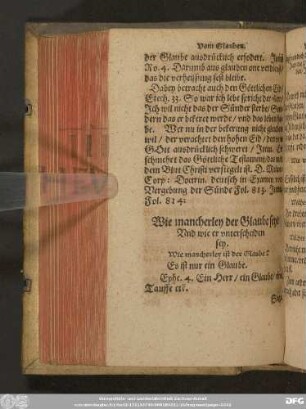 Vom Glauben.
der Glaube ausdrücklich erfodert.
Ro. 4. Darumb aus glauben
das die verheissung fest bleibe.
Daben betracht auch den Götlichen
Ezech. 33. So war ich lebe spricht der
Ich wil nicht das der Sünder sterbe
dern das er bekeret werde / vnd das leben
be. Wer nu in der bekerung nicht glauben
wil / der verachtet den hohen Eyd / den
GOtt ausdrücklich schweret / Item. Er
schmehet das Götliche Testament das mit
dem Blut Christi versiegelt ist. D.
Corp: Doctrin. deutsch in Examen
Vergebung der Sünde Fol. 813.
Fol. 814:
Wie mancherley der Glaube sey
Vnd wie er vnterscheiden
sey.
Wie mancherley ist der Glaube?
Es ist nur ein Glaube.
Ephe. 4. Ein Herr / ein Glaube
Tauffe etc.